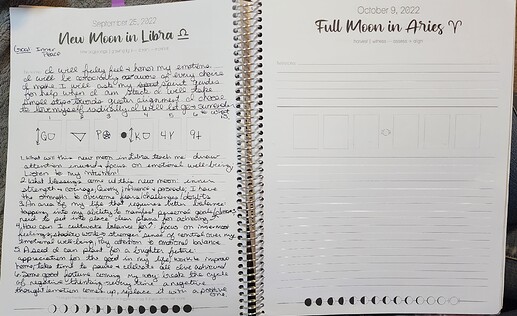 September 25, 2022
New Moon in Libra ♎
Goal: Inner
Peace
I will freely feel & honor my emotions
I will be aware of every choice
I make. I will ask my spirit guides
for help when I am stuck. I will take
single steps towards greater alignment. I choose
to love myself radically. I will let go & surrender
1 2 3 4 5 6
1. What will this new moon in Libra teach me: draw
attention inward & focus on emotional well-being
Listen to my intuition!
2. What blessings come w/ this new moon: inner
strength & courage, I have
the strength to overcome fears/challenges/doubts
3. An area of my life that requires better balance:
tapping into my ability to manifest personal goals/
need to put into place clear plans for achieving it
4. How can I cultivate balance for?: focus on innermost
feelings, stronger sense of control over my
emotional well-being. Pay attention to emotional balance
5. A seed I can plant for a brighter future:
appreciation for the good in my life, work to improve
home, take time to pause & celebrate all
6. Some good fortune coming my way: break the cycle
of negative thinking, every time a negative
thought/emotion comes up, replace it with a positive
one.
October 9, 2022
Full Moon in Aries ♈